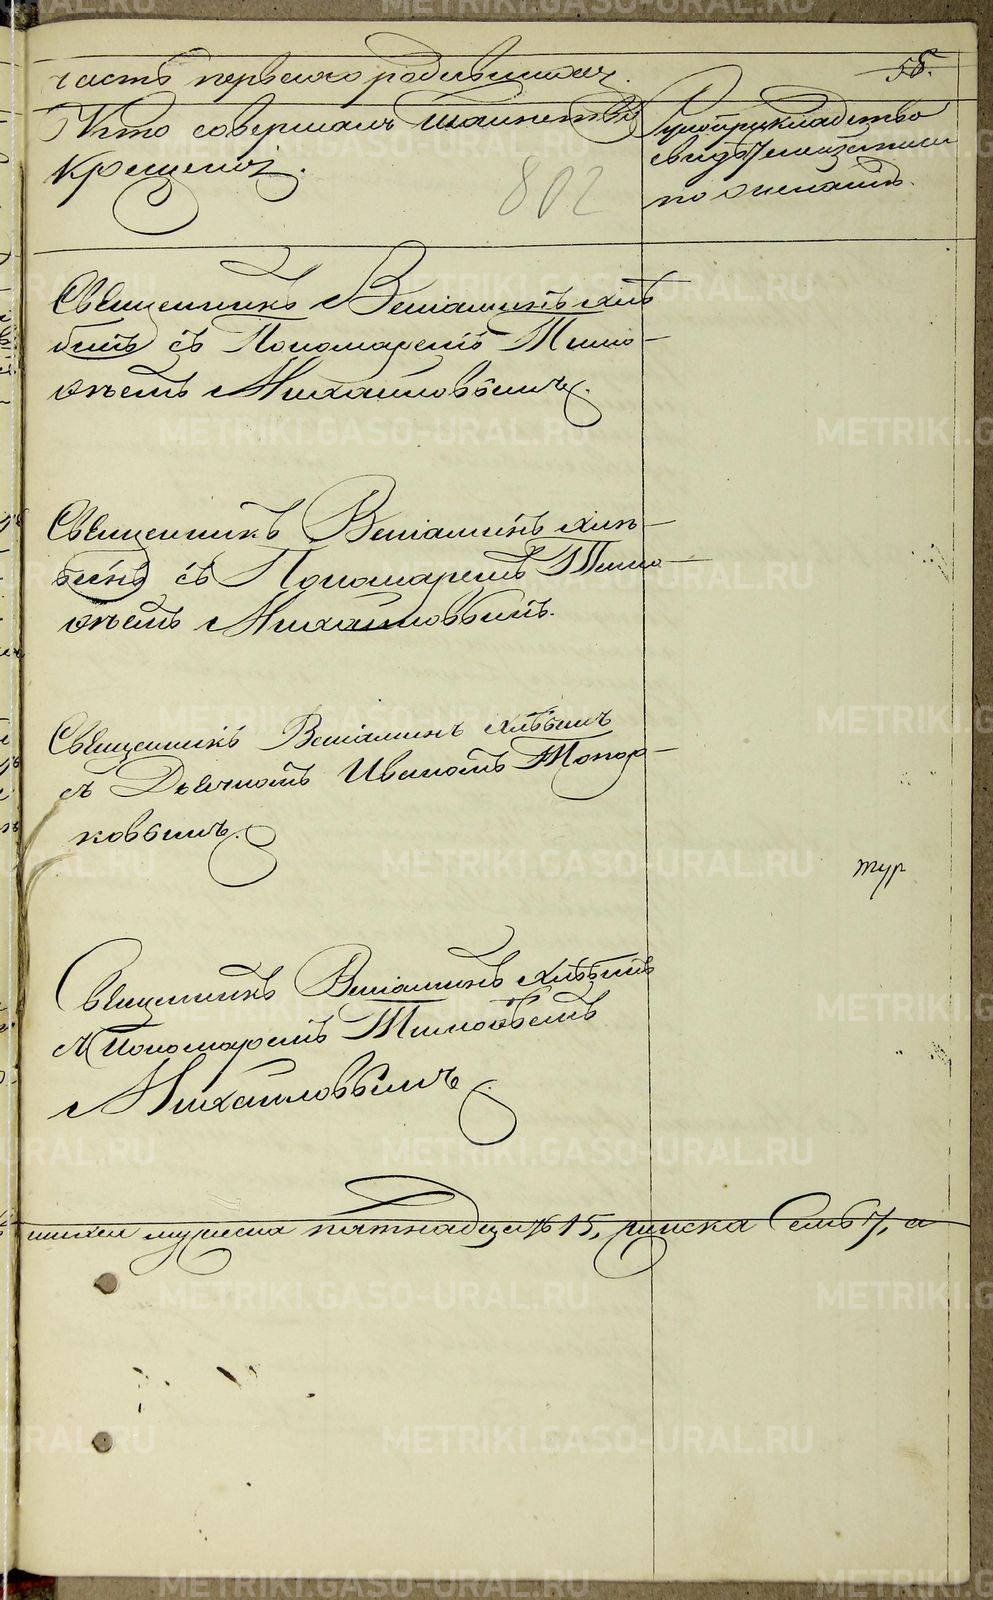 часть первая о родившихся.
58.
Кто совершалъ таинство
крещенія.
802
Рукоприкладство
свидѣтелей записи
по желанію.
Священникъ Веніаминъ Хлѣ-
бинъ съ Пономаремъ Тимо-
ѳеемъ Михайловымъ.
Священникъ Веніаминъ Хлѣ-
бинъ съ Пономаремъ Тимо-
ѳеемъ Михайловымъ.
Священникъ Веніаминъ Хлѣбинъ
съ Дьячкомъ Иваномъ Топор-
ковымъ.
тур
Священникъ Веніаминъ Хлѣбинъ
съ Пономаремъ Тимоѳеемъ
Михайловымъ.
мужеска пятнадцать 15, женска семь 7, а
METRIKI.GASO-URAL.RU